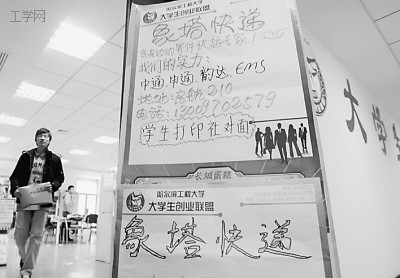 工学网
哈尔滨工程大学
大学生创业联盟
象塔快递
我们的实力:
中通.申通.韵达.EMS
地址:启航210
电话:13009702579
学生打印社对面
长城蛋糕
哈尔滨工程大学
大学生创业联盟
象塔快递
大学生